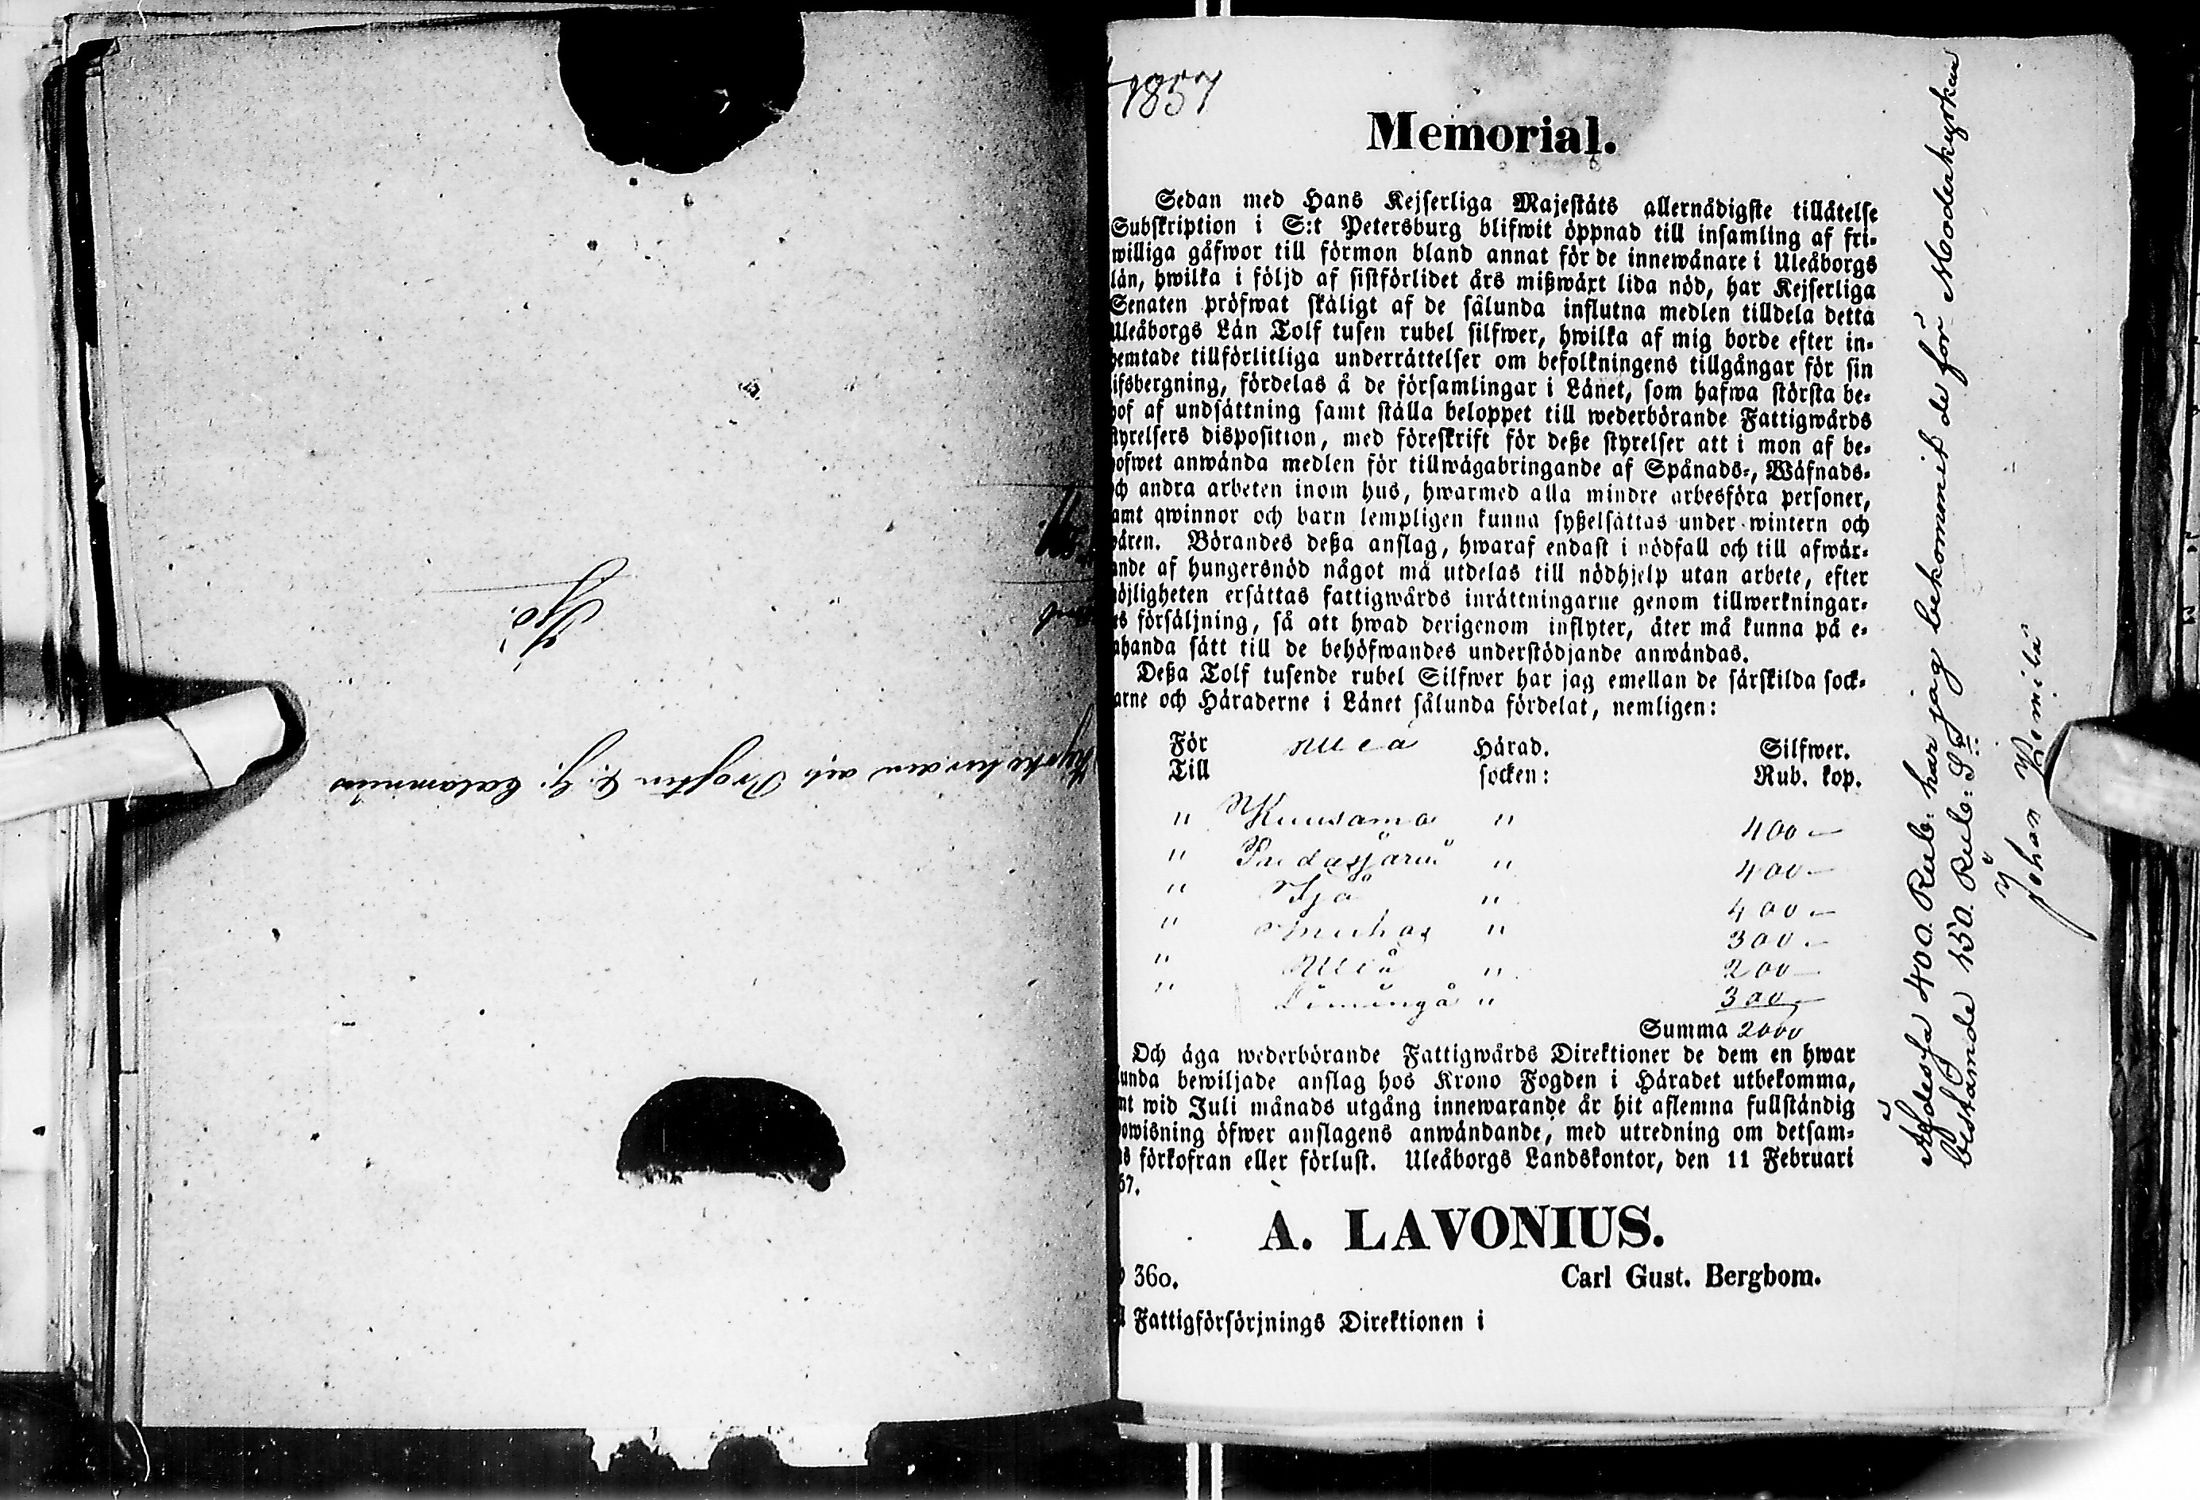 Kyrkoherden och Prosten L: G: Calamnius
Ijo.
1857
Memorial.
Sedan med Hans Kejserliga Majestäts allernådigste tillåtelse
Subskription i S:t Petersburg blifwit öppnad till insamling af fri-
williga gåfwor till förmon bland annat för de innewånare i Uleåborgs
län, hwilka i följd af sistförlidet års mißwäxt lida nöd, har Kejserliga
Senaten pröfwat skäligt af de sålunda influtna medlen tilldela detta
Uleåborgs Län Tolf tusen rubel silfwer, hwilka af mig borde efter in-
hemtade tillförlitliga underrättelser om befolkningens tillgångar för sin
lifsbergning, fördelas å de församlingar i Länet, som hafwa största be-
hof af undsättning samt ställa beloppet till wederbörande Fattigwårds
styrelsers disposition, med föreskrift för deße styrelser att i mon af be-
hofwet anwända medlen för tillwägabringande af Spånads-, Wäfnads-
och andra arbeten inom hus, hwarmed alla mindre arbesföra personer,
samt qwinnor och barn lempligen kunna syßelsättas under wintern och
wåren. Börandes deßa anslag, hwaraf endast i nödfall och till afwär-
ande af hungersnöd något må utdelas till nödhjelp utan arbete, efter
möjligheten ersättas fattigwårds inrättningarne genom tillwerkningar-
nes försäljning, så att hwad derigenom inflyter, åter må kunna på e-
nahanda sätt till de behöfwandes understödjande anwändas.
Deßa Tolf tusende rubel Silfwer har jag emellan de särskilda sock-
narne och Häraderne i Länet sålunda fördelat, nemligen:
För Uleå Härad. Silfwer.
Till socken: Rub. kop.
" Kuusamo " 400 —
" Pudasjärvi " 400 —
" Ijo " 400 —
" Muhos " 300 —
" Uleå " 200 —
" Limingå " 300 —
Summa 2000
Och äga wederbörande Fattigwårds Direktioner de dem en hwar
sålunda bewiljade anslag hos Krono Fogden i Häradet utbekomma,
samt wid Juli månads utgång innewarande år hit aflemna fullständig
redowisning öfwer anslagens anwändande, med utredning om detsam-
mas förkofran eller förlust. Uleåborgs Landskontor, den 11 Februari
57.
A. LAVONIUS.
Carl Gust. Bergbom.
360.
Fattigförsörjnings Direktionen i
Af dessa 400. Rub: har jag bekommit de för Moderkyrkan
bestämde 150. Rub: Sr
Johan